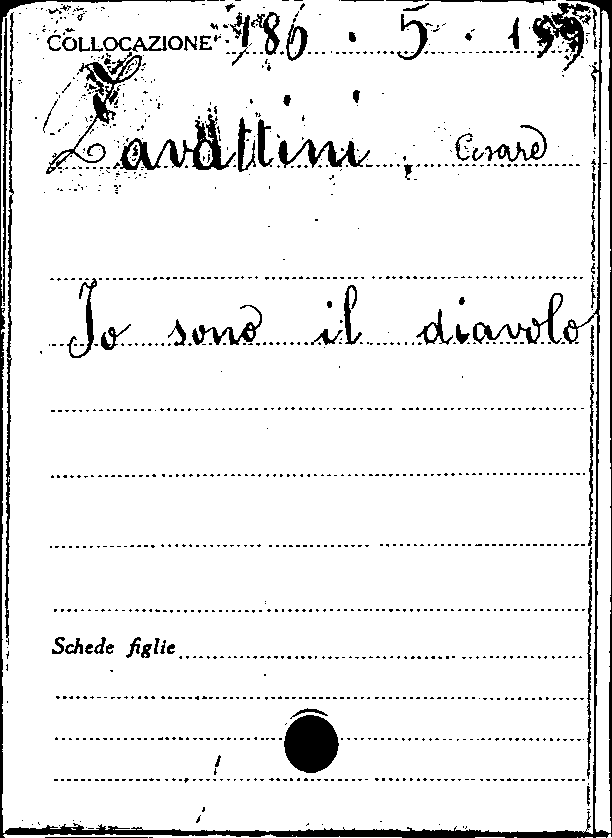 COLLOCAZIONE 186 . 5 . 199
Zavattini , Cesare
Io sono il diavolo
Schede figlie